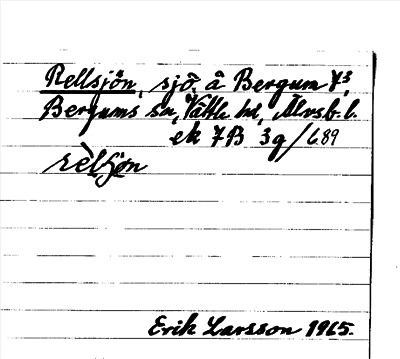 Rellsjön, sjö å Bergum 7³,
Bergums sn, Vättle hd, Älvsb. l.
ek 7B 3g/6.89
rèlʃөn
Erik Larsson 1965.